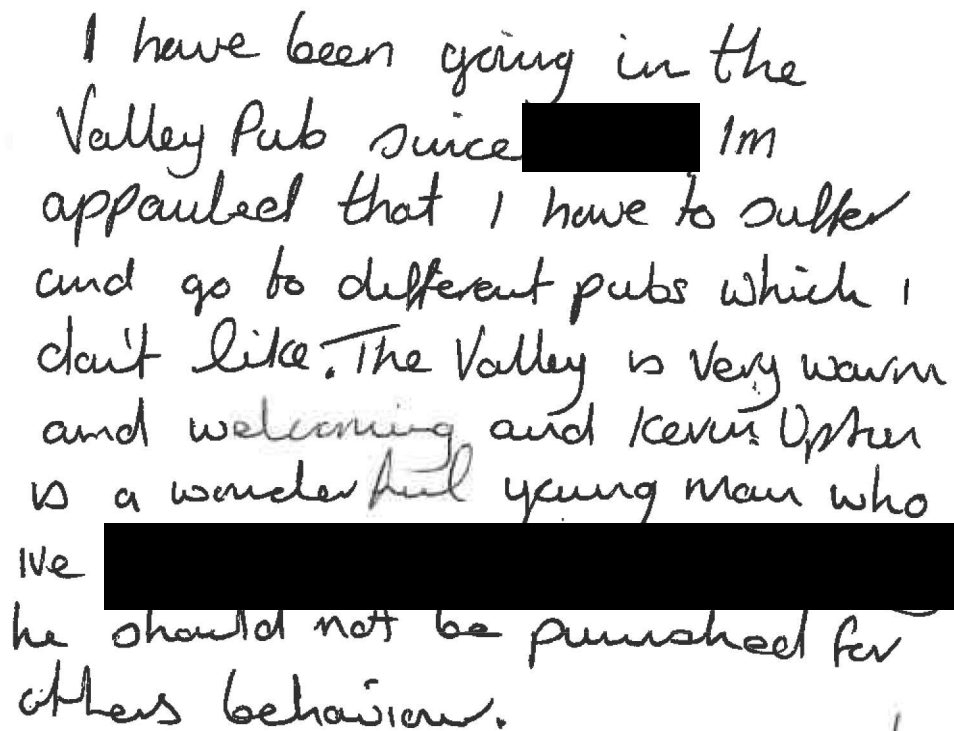 I have been going in the
Valley Pub since Im
appauled that I have to suffer
and go to different pubs which I
don't like. The Valley is very warm
and welcoming and Kevin
is a wonderful young man who
Ive
he should not be punished for
others behaviour.